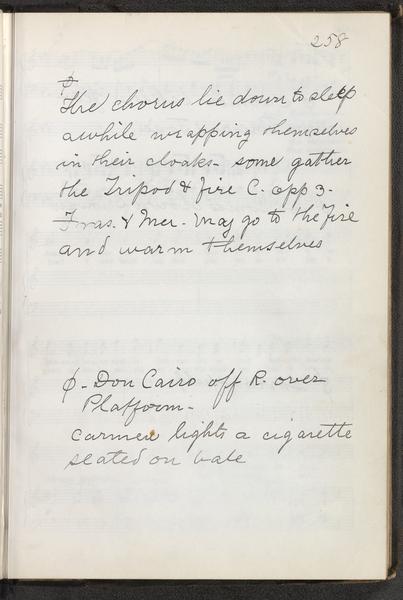 258
φ
The chorus lie down to sleep
awhile wrapping themselves
in their cloaks - some gather
the Tripod & fire C. opp 3 -
Fras. & Mer. may go to the fire
and warm themselves
φ - Don Cairo off R. over
Platform -
Carmen lights a cigarette
seated on bale